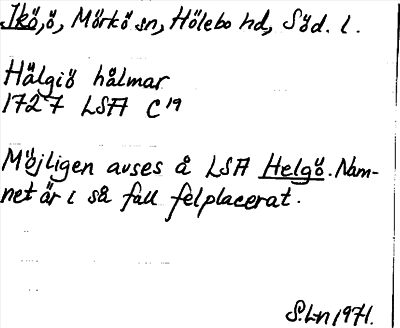 Ikö, ö, Mörkö sn, Hölebo hd, Söd. l.
Hälgiö hålmar
1727 LSA C19
Möjligen avses å LSA Helgö. Nam-
net är i så fall felplacerat.
S.Ln 1971.